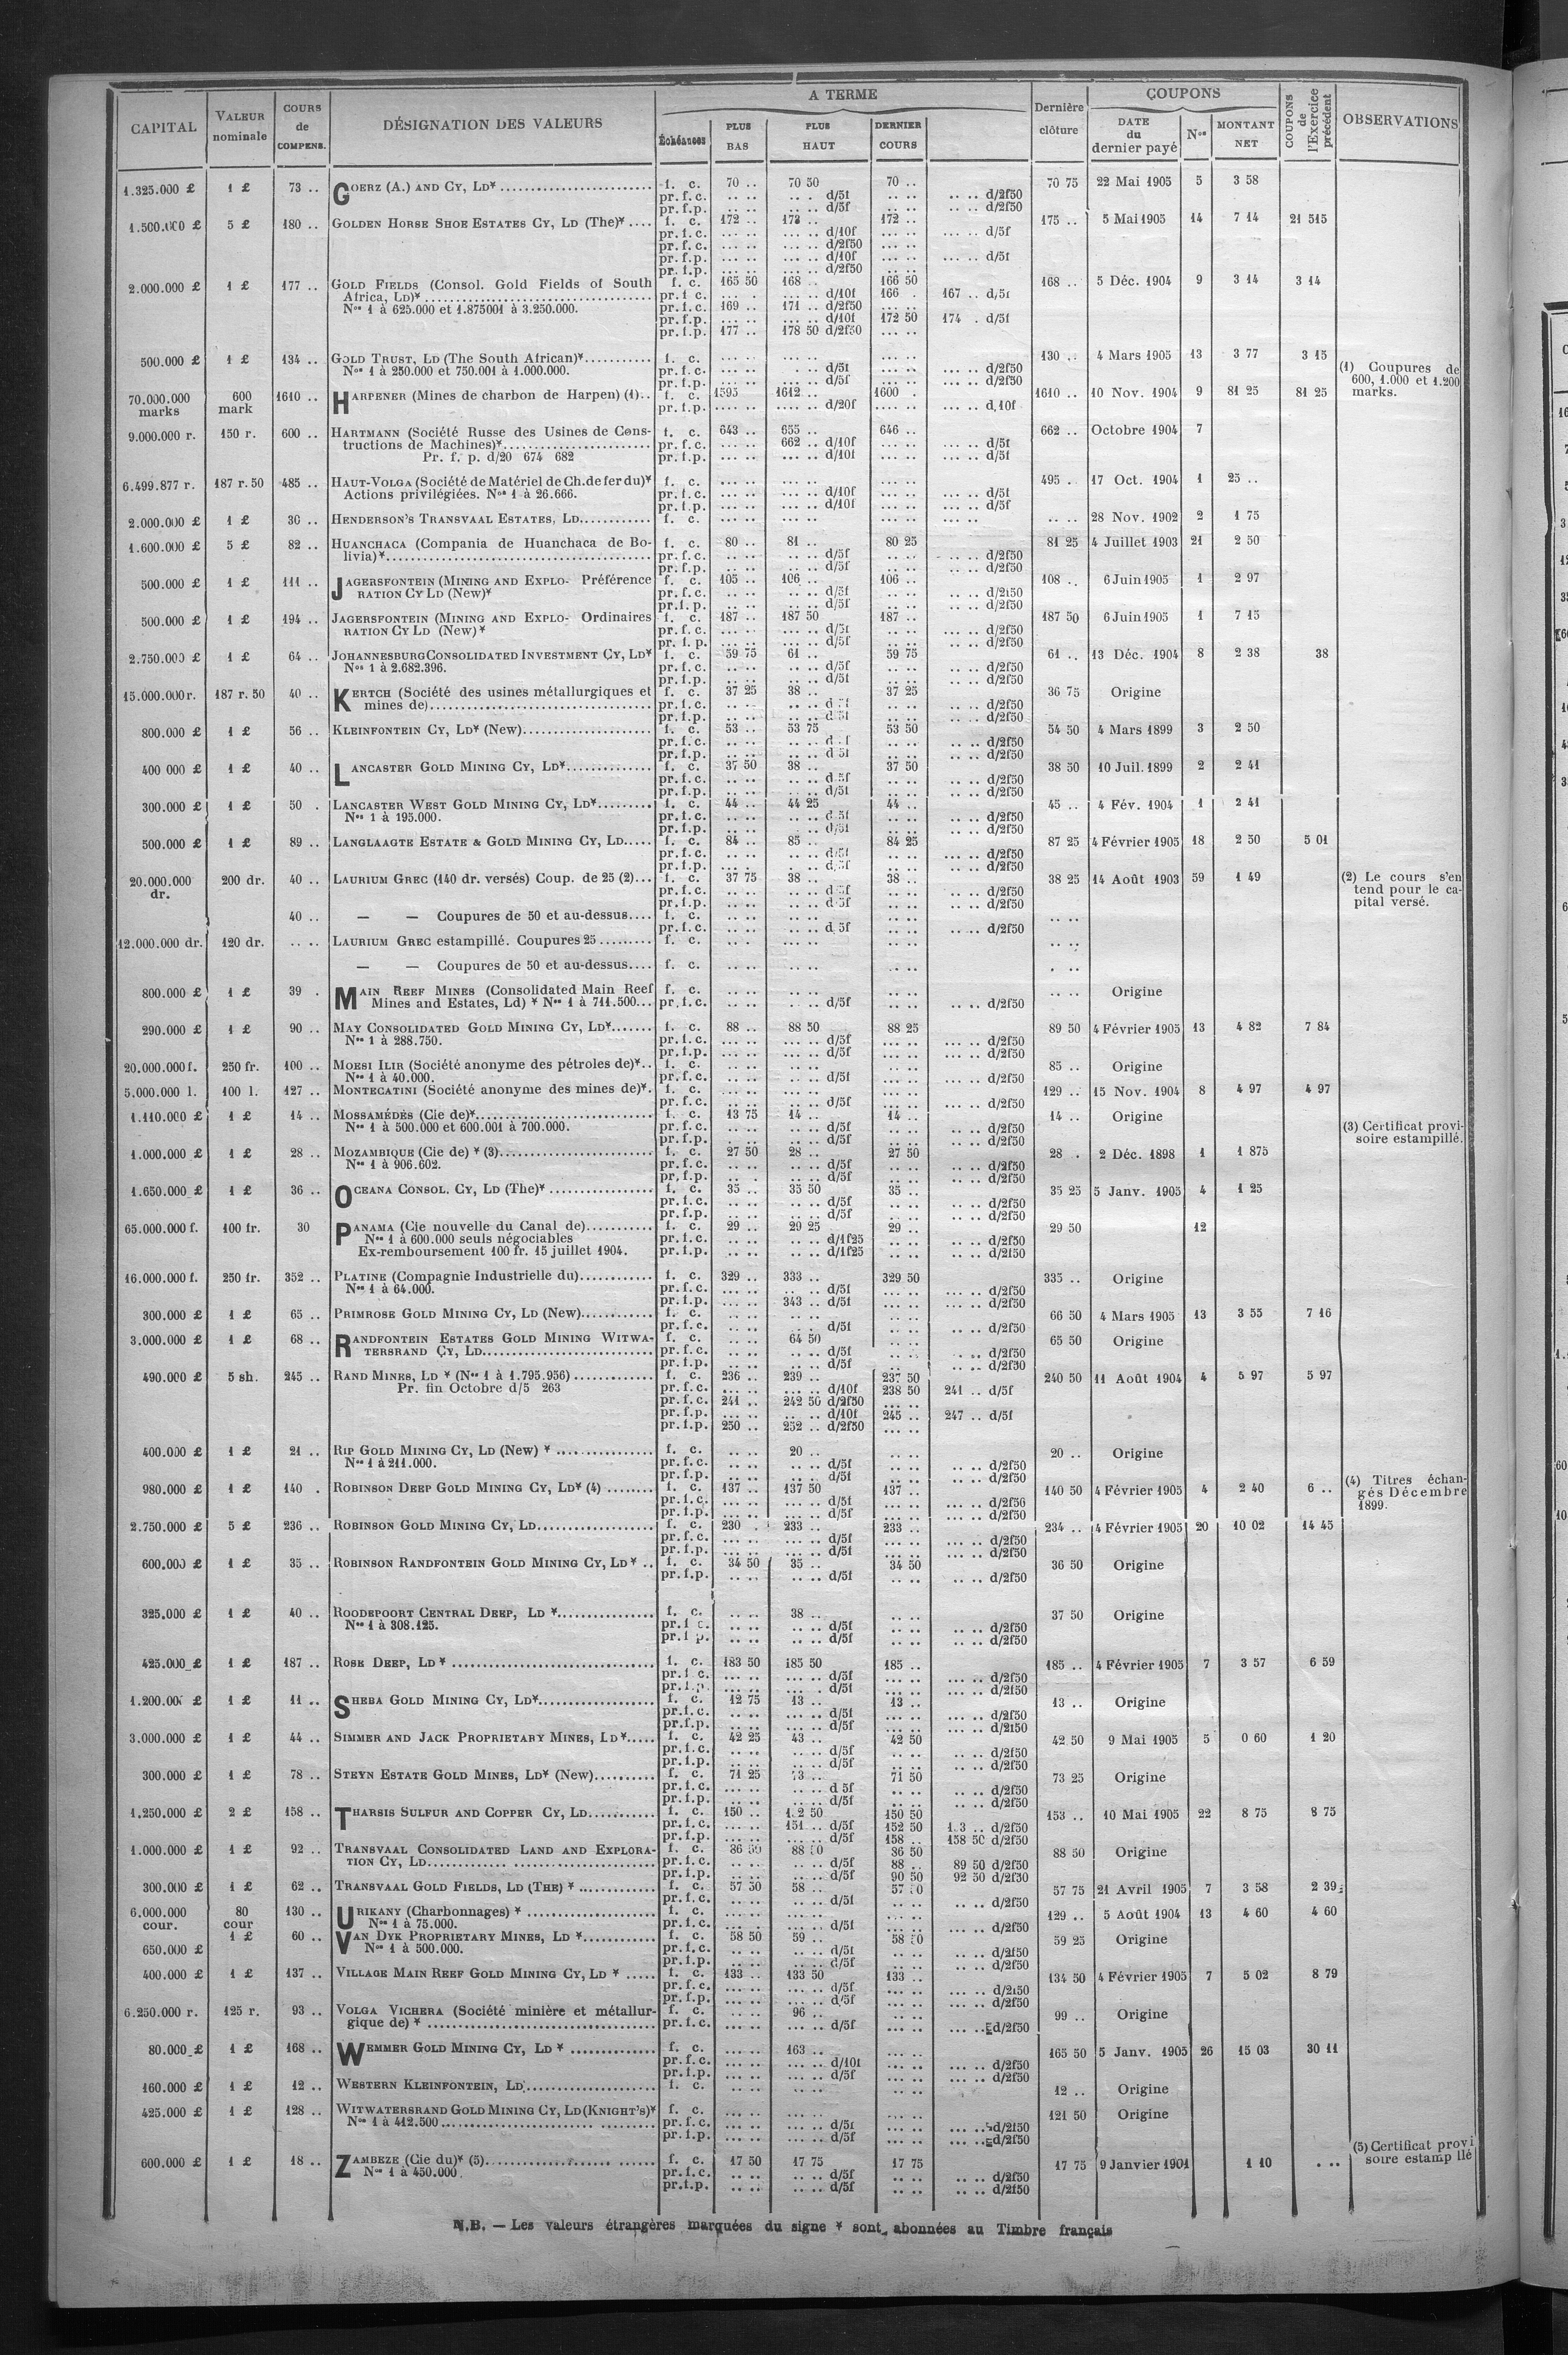 A TERME
COUPONS
CAPITAL | VALEUR nominale | COURS de COMPENS. | DÉSIGNATION DES VALEURS | Échéances | PLUS BAS | PLUS HAUT | DERNIER COURS | Dernière clôture | DATE du dernier payé | Nos | MONTANT NET | COUPONS de l'Exercice précédent | OBSERVATIONS
1.325.000 £ | 1 £ | 73 .. | GOERZ (A.) AND CY, LD* | f. c. | 70 .. | 70 50 | 70 .. | 70 75 | 22 Mai 1905 | 5 | 3 58
pr. f. c. .. .. d/5f .. .. d/2f50
pr. f. p. .. .. d/5f .. .. d/2f50
1.500.000 £ | 5 £ | 180 .. | GOLDEN HORSE SHOE ESTATES CY, LD (The)* | f. c. | 172 .. | 173 .. | 172 .. | 175 .. | 5 Mai 1905 | 14 | 7 14 | 21 515
pr. f. c. d/10f d/5f
pr. f. c. d/2f50
pr. f. p. d/10f d/5f
pr. f. p. d/2f50
2.000.000 £ | 1 £ | 177 .. | GOLD FIELDS (Consol. Gold Fields of South | f. c. | 165 50 | 168 .. | 166 50 | 168 .. | 5 Déc. 1904 | 9 | 3 14 | 3 14
Africa, LD)* pr. f. c. d/10f 166 . 167 .. d/5f
Nos 1 à 625.000 et 1.875001 à 3.250.000. pr. f. c. 169 .. 171 .. d/2f50
pr. f. p. d/10f 172 50 174 . d/5f
pr. f. p. 177 .. 178 50 d/2f50
500.000 £ | 1 £ | 134 .. | GOLD TRUST, LD (The South African)* | f. c. | 130 .. | 4 Mars 1905 | 13 | 3 77 | 3 15
Nos 1 à 250.000 et 750.001 à 1.000.000. pr. f. c. d/5f d/2f50
pr. f. p. d/5f d/2f50
(1) Coupures de
600, 1.000 et 1.200
marks.
70.000.000 marks | 600 mark | 1610 .. | HARPENER (Mines de charbon de Harpen) (1) | f. c. | 1595 | 1612 .. | 1600 . | 1610 .. | 10 Nov. 1904 | 9 | 81 25 | 81 25
pr. f. p. d/20f d,10f
9.000.000 r. | 150 r. | 600 .. | HARTMANN (Société Russe des Usines de Cons- | f. c. | 643 .. | 655 .. | 646 .. | 662 .. | Octobre 1904 | 7
tructions de Machines)* pr. f. c. 662 .. d/10f d/5f
Pr. f. p. d/20 674 682 pr. f. p. d/10f d/5f
6.499.877 r. | 187 r. 50 | 485 .. | HAUT-VOLGA (Société de Matériel de Ch. de fer du)* | f. c. | 495 . | 17 Oct. 1904 | 1 | 25 ..
Actions privilégiées. Nos 1 à 26.666. pr. f. c. d/10f d/5f
pr. f. p. d/10f d/5f
2.000.000 £ | 1 £ | 30 .. | HENDERSON'S TRANSVAAL ESTATES, LD | f. c. | .. .. | 28 Nov. 1902 | 2 | 1 75
1.600.000 £ | 5 £ | 82 .. | HUANCHACA (Compania de Huanchaca de Bo- | f. c. | 80 .. | 81 .. | 80 25 | 81 25 | 4 Juillet 1903 | 21 | 2 50
livia)* pr. f. c. d/5f d/2f50
pr. f. p. d/5f d/2f50
500.000 £ | 1 £ | 111 .. | JAGERSFONTEIN (MINING AND EXPLO- Préférence | f. c. | 105 .. | 106 .. | 106 .. | 108 .. | 6 Juin 1905 | 1 | 2 97
RATION CY LD (New)* pr. f. c. d/5f d/2f50
pr. f. p. d/5f d/2f50
500.000 £ | 1 £ | 194 .. | JAGERSFONTEIN (MINING AND EXPLO- Ordinaires | f. c. | 187 .. | 187 50 | 187 .. | 187 50 | 6 Juin 1905 | 1 | 7 15
RATION CY LD (New)* pr. f. c. d/5f d/2f50
pr. f. p. d/5f d/2f50
2.750.000 £ | 1 £ | 64 .. | JOHANNESBURG CONSOLIDATED INVESTMENT CY, LD* | f. c. | 59 75 | 61 .. | 59 75 | 61 .. | 13 Déc. 1904 | 8 | 2 38 | 38
Nos 1 à 2.682.396. pr. f. c. d/5f d/2f50
pr. f. p. d/5f d/2f50
15.000.000 r. | 187 r. 50 | 40 .. | KERTCH (Société des usines métallurgiques et | f. c. | 37 25 | 38 .. | 37 25 | 36 75 | Origine
mines de) pr. f. c. d/2f50
pr. f. p. d 5f d/2f50
800.000 £ | 1 £ | 56 .. | KLEINFONTEIN CY, LD* (New) | f. c. | 53 .. | 53 75 | 53 50 | 54 50 | 4 Mars 1899 | 3 | 2 50
pr. f. c. d/2f50
pr. f. p. d 5f d/2f50
400 000 £ | 1 £ | 40 .. | LANCASTER GOLD MINING CY, LD* | f. c. | 37 50 | 38 .. | 37 50 | 38 50 | 10 Juil. 1899 | 2 | 2 41
pr. f. c. d.5f d/2f50
pr. f. p. d/5f d/2f50
300.000 £ | 1 £ | 50 . | LANCASTER WEST GOLD MINING CY, LD* | f. c. | 44 .. | 44 25 | 44 .. | 45 .. | 4 Fév. 1904 | 1 | 2 41
Nos 1 à 195.000. pr. f. c. d 5f d/2f50
pr. f. p. d/5f d/2f50
500.000 £ | 1 £ | 89 .. | LANGLAAGTE ESTATE & GOLD MINING CY, LD | f. c. | 84 .. | 85 .. | 84 25 | 87 25 | 4 Février 1905 | 18 | 2 50 | 5 01
pr. f. c. d/5f d/2f50
pr. f. p. d/5f d/2f50
20.000.000 dr. | 200 dr. | 40 .. | LAURIUM GREC (140 dr. versés) Coup. de 25 (2) | f. c. | 37 75 | 38 .. | 38 .. | 38 25 | 14 Août 1903 | 59 | 1 49
pr. f. c. d/2f50
pr. f. p. d 5f d/2f50
(2) Le cours s'en
tend pour le ca-
pital versé.
40 .. | — — Coupures de 50 et au-dessus | f. c.
pr. f. c. d 5f d/2f50
12.000.000 dr. | 120 dr. | .. .. | LAURIUM GREC estampillé. Coupures 25 | f. c.
— — Coupures de 50 et au-dessus | f. c.
800.000 £ | 1 £ | 39 . | MAIN REEF MINES (Consolidated Main Reef | f. c. | .. .. | Origine
Mines and Estates, Ld) * Nos 1 à 711.500 pr. f. c. d/5f d/2f50
290.000 £ | 1 £ | 90 .. | MAY CONSOLIDATED GOLD MINING CY, LD* | f. c. | 88 .. | 88 50 | 88 25 | 89 50 | 4 Février 1905 | 13 | 4 82 | 7 84
Nos 1 à 288.750. pr. f. c. d/5f d/2f50
pr. f. p. d/5f d/2f50
20.000.000 f. | 250 fr. | 100 .. | MOESI ILIR (Société anonyme des pétroles de)* | f. c. | 85 .. | Origine
Nos 1 à 40.000. pr. f. c. d/5f d/2f50
5.000.000 l. | 100 l. | 127 .. | MONTECATINI (Société anonyme des mines de)* | f. c. | 129 .. | 15 Nov. 1904 | 8 | 4 97 | 4 97
pr. f. c. d/5f d/2f50
1.110.000 £ | 1 £ | 14 .. | MOSSAMÉDÈS (Cie de)* | f. c. | 13 75 | 14 .. | 14 .. | 14 .. | Origine
Nos 1 à 500.000 et 600.001 à 700.000. pr. f. c. d/5f d/2f50
pr. f. p. d/5f d/2f50
(3) Certificat provi-
soire estampillé.
1.000.000 £ | 1 £ | 28 .. | MOZAMBIQUE (Cie de) * (3) | f. c. | 27 50 | 28 .. | 27 50 | 28 . | 2 Déc. 1898 | 1 | 1 875
Nos 1 à 906.602. pr. f. c. d/5f d/2f50
pr. f. p. d/5f d/2f50
1.650.000 £ | 1 £ | 36 .. | OCEANA CONSOL. CY, LD (The)* | f. c. | 35 .. | 35 50 | 35 .. | 35 25 | 5 Janv. 1905 | 4 | 1 25
pr. f. c. d/5f d/2f50
pr. f. p. d/5f d/2f50
65.000.000 f. | 100 fr. | 30 | PANAMA (Cie nouvelle du Canal de) | f. c. | 29 .. | 29 25 | 29 .. | 29 50 | 12
Nos 1 à 600.000 seuls négociables pr. f. c. d/1f25 d/2f50
Ex-remboursement 100 fr. 15 juillet 1904. pr. f. p. d/1f25 d/2f50
16.000.000 f. | 250 fr. | 352 .. | PLATINE (Compagnie Industrielle du) | f. c. | 329 .. | 333 .. | 329 50 | 335 .. | Origine
Nos 1 à 64.000. pr. f. c. d/5f d/2f50
pr. f. p. 343 .. d/5f d/2f50
300.000 £ | 1 £ | 65 .. | PRIMROSE GOLD MINING CY, LD (New) | f. c. | 66 50 | 4 Mars 1905 | 13 | 3 55 | 7 16
pr. f. c. d/5f d/2f50
3.000.000 £ | 1 £ | 68 .. | RANDFONTEIN ESTATES GOLD MINING WITWA- | f. c. | .. .. | 64 50 | 65 50 | Origine
TERSRAND CY, LD pr. f. c. d/5f d/2f50
pr. f. p. d/5f d/2f50
490.000 £ | 5 sh. | 245 .. | RAND MINES, LD * (Nos 1 à 1.795.956) | f. c. | 236 .. | 239 .. | 237 50 | 240 50 | 11 Août 1904 | 4 | 5 97 | 5 97
Pr. fin Octobre d/5 263 pr. f. c. d/10f 238 50 241 .. d/5f
pr. f. c. 241 .. 242 50 d/2f50
pr. f. p. d/10f 245 .. 247 .. d/5f
pr. f. p. 250 .. 252 .. d/2f50
400.000 £ | 1 £ | 21 .. | RIP GOLD MINING CY, LD (New) * | f. c. | .. .. | 20 .. | 20 .. | Origine
Nos 1 à 211.000. pr. f. c. d/5f d/2f50
pr. f. p. d/5f d/2f50
980.000 £ | 1 £ | 140 . | ROBINSON DEEP GOLD MINING CY, LD* (4) | f. c. | 137 .. | 137 50 | 137 .. | 140 50 | 4 Février 1905 | 4 | 2 40 | 6 ..
pr. f. c. d/5f d/2f50
pr. f. p. d/5f d/2f50
(4) Titres échan-
gés Décembre
1899.
2.750.000 £ | 5 £ | 236 .. | ROBINSON GOLD MINING CY, LD | f. c. | 230 . | 233 .. | 233 .. | 234 .. | 4 Février 1905 | 20 | 10 02 | 14 45
pr. f. c. d/5f d/2f50
pr. f. p. d/5f d/2f50
600.000 £ | 1 £ | 35 .. | ROBINSON RANDFONTEIN GOLD MINING CY, LD * | f. c. | 34 50 | 35 .. | 34 50 | 36 50 | Origine
pr. f. p. d/5f d/2f50
325.000 £ | 1 £ | 40 .. | ROODEPOORT CENTRAL DEEP, LD * | f. c. | .. .. | 38 .. | 37 50 | Origine
Nos 1 à 308.125. pr. f. c. d/5f d/2f50
pr. f. p. d/5f d/2f50
425.000 £ | 1 £ | 187 .. | ROSE DEEP, LD * | f. c. | 183 50 | 185 50 | 185 .. | 185 .. | 4 Février 1905 | 7 | 3 57 | 6 59
pr. f. c. d/5f d/2f50
pr. f. p. d/5f d/2f50
1.200.000 £ | 1 £ | 11 .. | SHEBA GOLD MINING CY, LD* | f. c. | 12 75 | 13 .. | 13 .. | 13 .. | Origine
pr. f. c. d/5f d/2f50
pr. f. p. d/5f d/2f50
3.000.000 £ | 1 £ | 44 .. | SIMMER AND JACK PROPRIETARY MINES, LD* | f. c. | 42 25 | 43 .. | 42 50 | 42 50 | 9 Mai 1905 | 5 | 0 60 | 1 20
pr. f. c. d/5f d/2f50
pr. f. p. d/5f d/2f50
300.000 £ | 1 £ | 78 .. | STEYN ESTATE GOLD MINES, LD* (New) | f. c. | 71 25 | 71 50 | 73 25 | Origine
pr. f. c. d 5f d/2f50
pr. f. p. d/5f d/2f50
1.250.000 £ | 2 £ | 158 .. | THARSIS SULFUR AND COPPER CY, LD | f. c. | 150 .. | 150 50 | 153 .. | 10 Mai 1905 | 22 | 8 75 | 8 75
pr. f. c. 151 .. d/5f 152 50 d/2f50
pr. f. p. d/5f 158 .. 158 50 d/2f50
1.000.000 £ | 1 £ | 92 .. | TRANSVAAL CONSOLIDATED LAND AND EXPLORA- | f. c. | 86 50 | 88 50 | 86 50 | 88 50 | Origine
TION CY, LD pr. f. c. d/5f 88 .. 89 50 d/2f50
pr. f. p. d/5f 90 50 92 50 d/2f50
300.000 £ | 1 £ | 62 .. | TRANSVAAL GOLD FIELDS, LD (THE) * | f. c. | 57 50 | 58 .. | 57 75 | 21 Avril 1905 | 7 | 3 58 | 2 39
pr. f. c. d/5f d/2f50
6.000.000 cour. | 80 cour | 130 .. | URIKANY (Charbonnages) * | f. c. | 129 .. | 5 Août 1904 | 13 | 4 60 | 4 60
Nos 1 à 75.000. pr. f. c. d/5f d/2f50
650.000 £ | 1 £ | 60 .. | VAN DYK PROPRIETARY MINES, LD * | f. c. | 58 50 | 59 .. | 59 25 | Origine
Nos 1 à 500.000. pr. f. c. d/5f d/2f50
pr. f. p. d/5f d/2f50
400.000 £ | 1 £ | 137 .. | VILLAGE MAIN REEF GOLD MINING CY, LD * | f. c. | 133 .. | 133 50 | 133 .. | 134 50 | 4 Février 1905 | 7 | 5 02 | 8 79
pr. f. c. d/5f d/2f50
pr. f. p. d/5f d/2f50
6.250.000 r. | 125 r. | 93 .. | VOLGA VICHERA (Société minière et métallur- | f. c. | .. .. | 96 .. | 99 .. | Origine
gique de) * pr. f. c. d/5f d/2f50
80.000 £ | 1 £ | 168 .. | WEMMER GOLD MINING CY, LD * | f. c. | .. .. | 163 .. | 165 50 | 5 Janv. 1905 | 26 | 15 03 | 30 11
pr. f. c. d/10f d/2f50
pr. f. p. d/5f d/2f50
160.000 £ | 1 £ | 12 .. | WESTERN KLEINFONTEIN, LD | f. c. | 12 .. | Origine
425.000 £ | 1 £ | 128 .. | WITWATERSRAND GOLD MINING CY, LD (KNIGHT'S)* | f. c. | 121 50 | Origine
Nos 1 à 412.500 pr. f. c. d/5f d/2f50
pr. f. p. d/5f d/2f50
(5) Certificat provi
soire estamp llé
600.000 £ | 1 £ | 18 .. | ZAMBEZE (Cie du)* (5) | f. c. | 17 50 | 17 75 | 17 75 | 17 75 | 9 Janvier 1901 | 1 10 | ...
Nos 1 à 450.000. pr. f. c. d/5f d/2f50
pr. f. p. d/5f d/2f50
N.B. — Les valeurs étrangères marquées du signe * sont abonnées au Timbre français